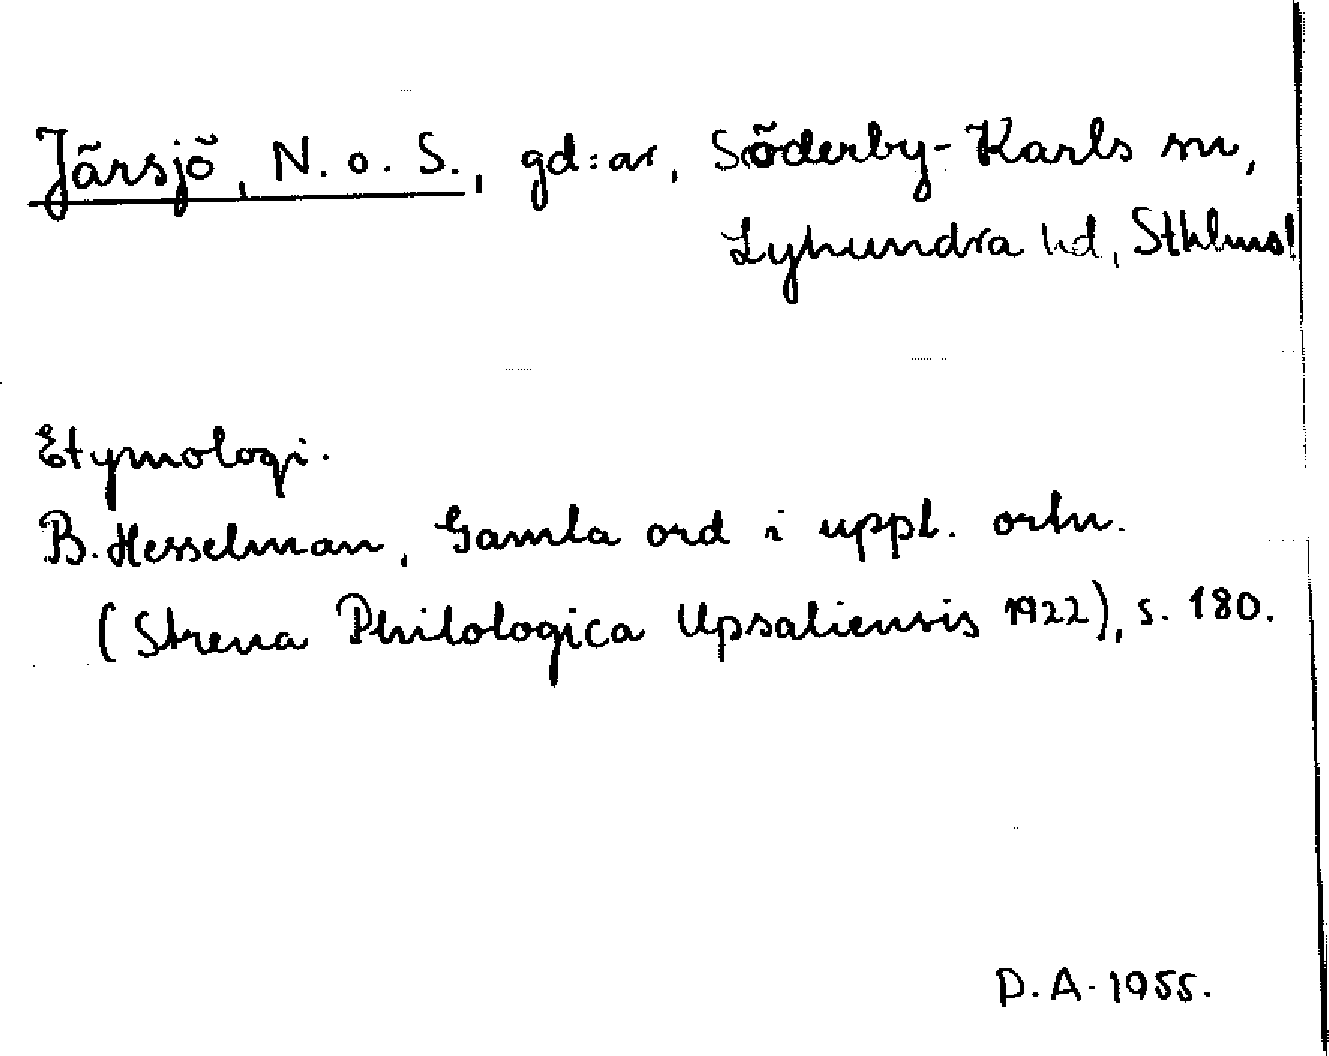 Järsjö, N. o. S., gd:ar, Söderby-Karls sn,
Lyhundra hd, Sthlmsl
Etymologi.
B. Hesselman, Gamla ord i uppl. ortn.
(Strena Philologica Upsaliensis 1922), s. 180.
D.A. 1955.